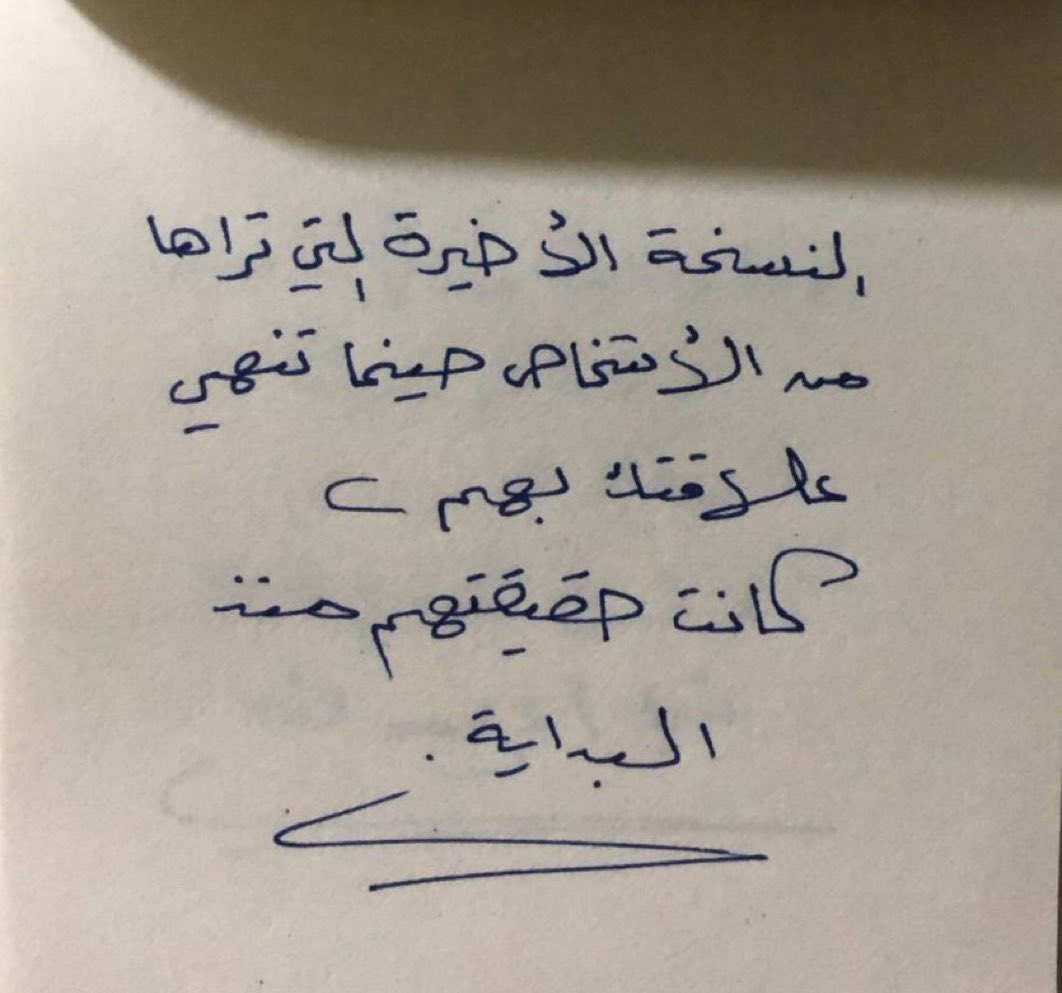 النسخة الأخيرة التي تراها
من الأشخاص حينما تنهي
علاقتك بهم
كانت حقيقتهم منذ
البداية .